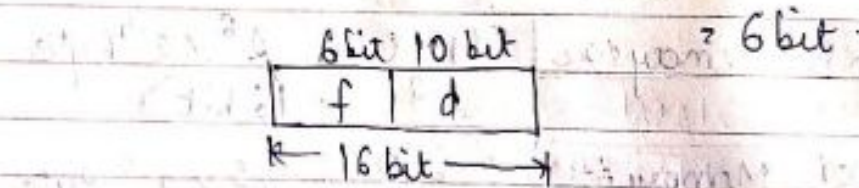 = 6 bit
6 bit 10 bit
f d
16 bit